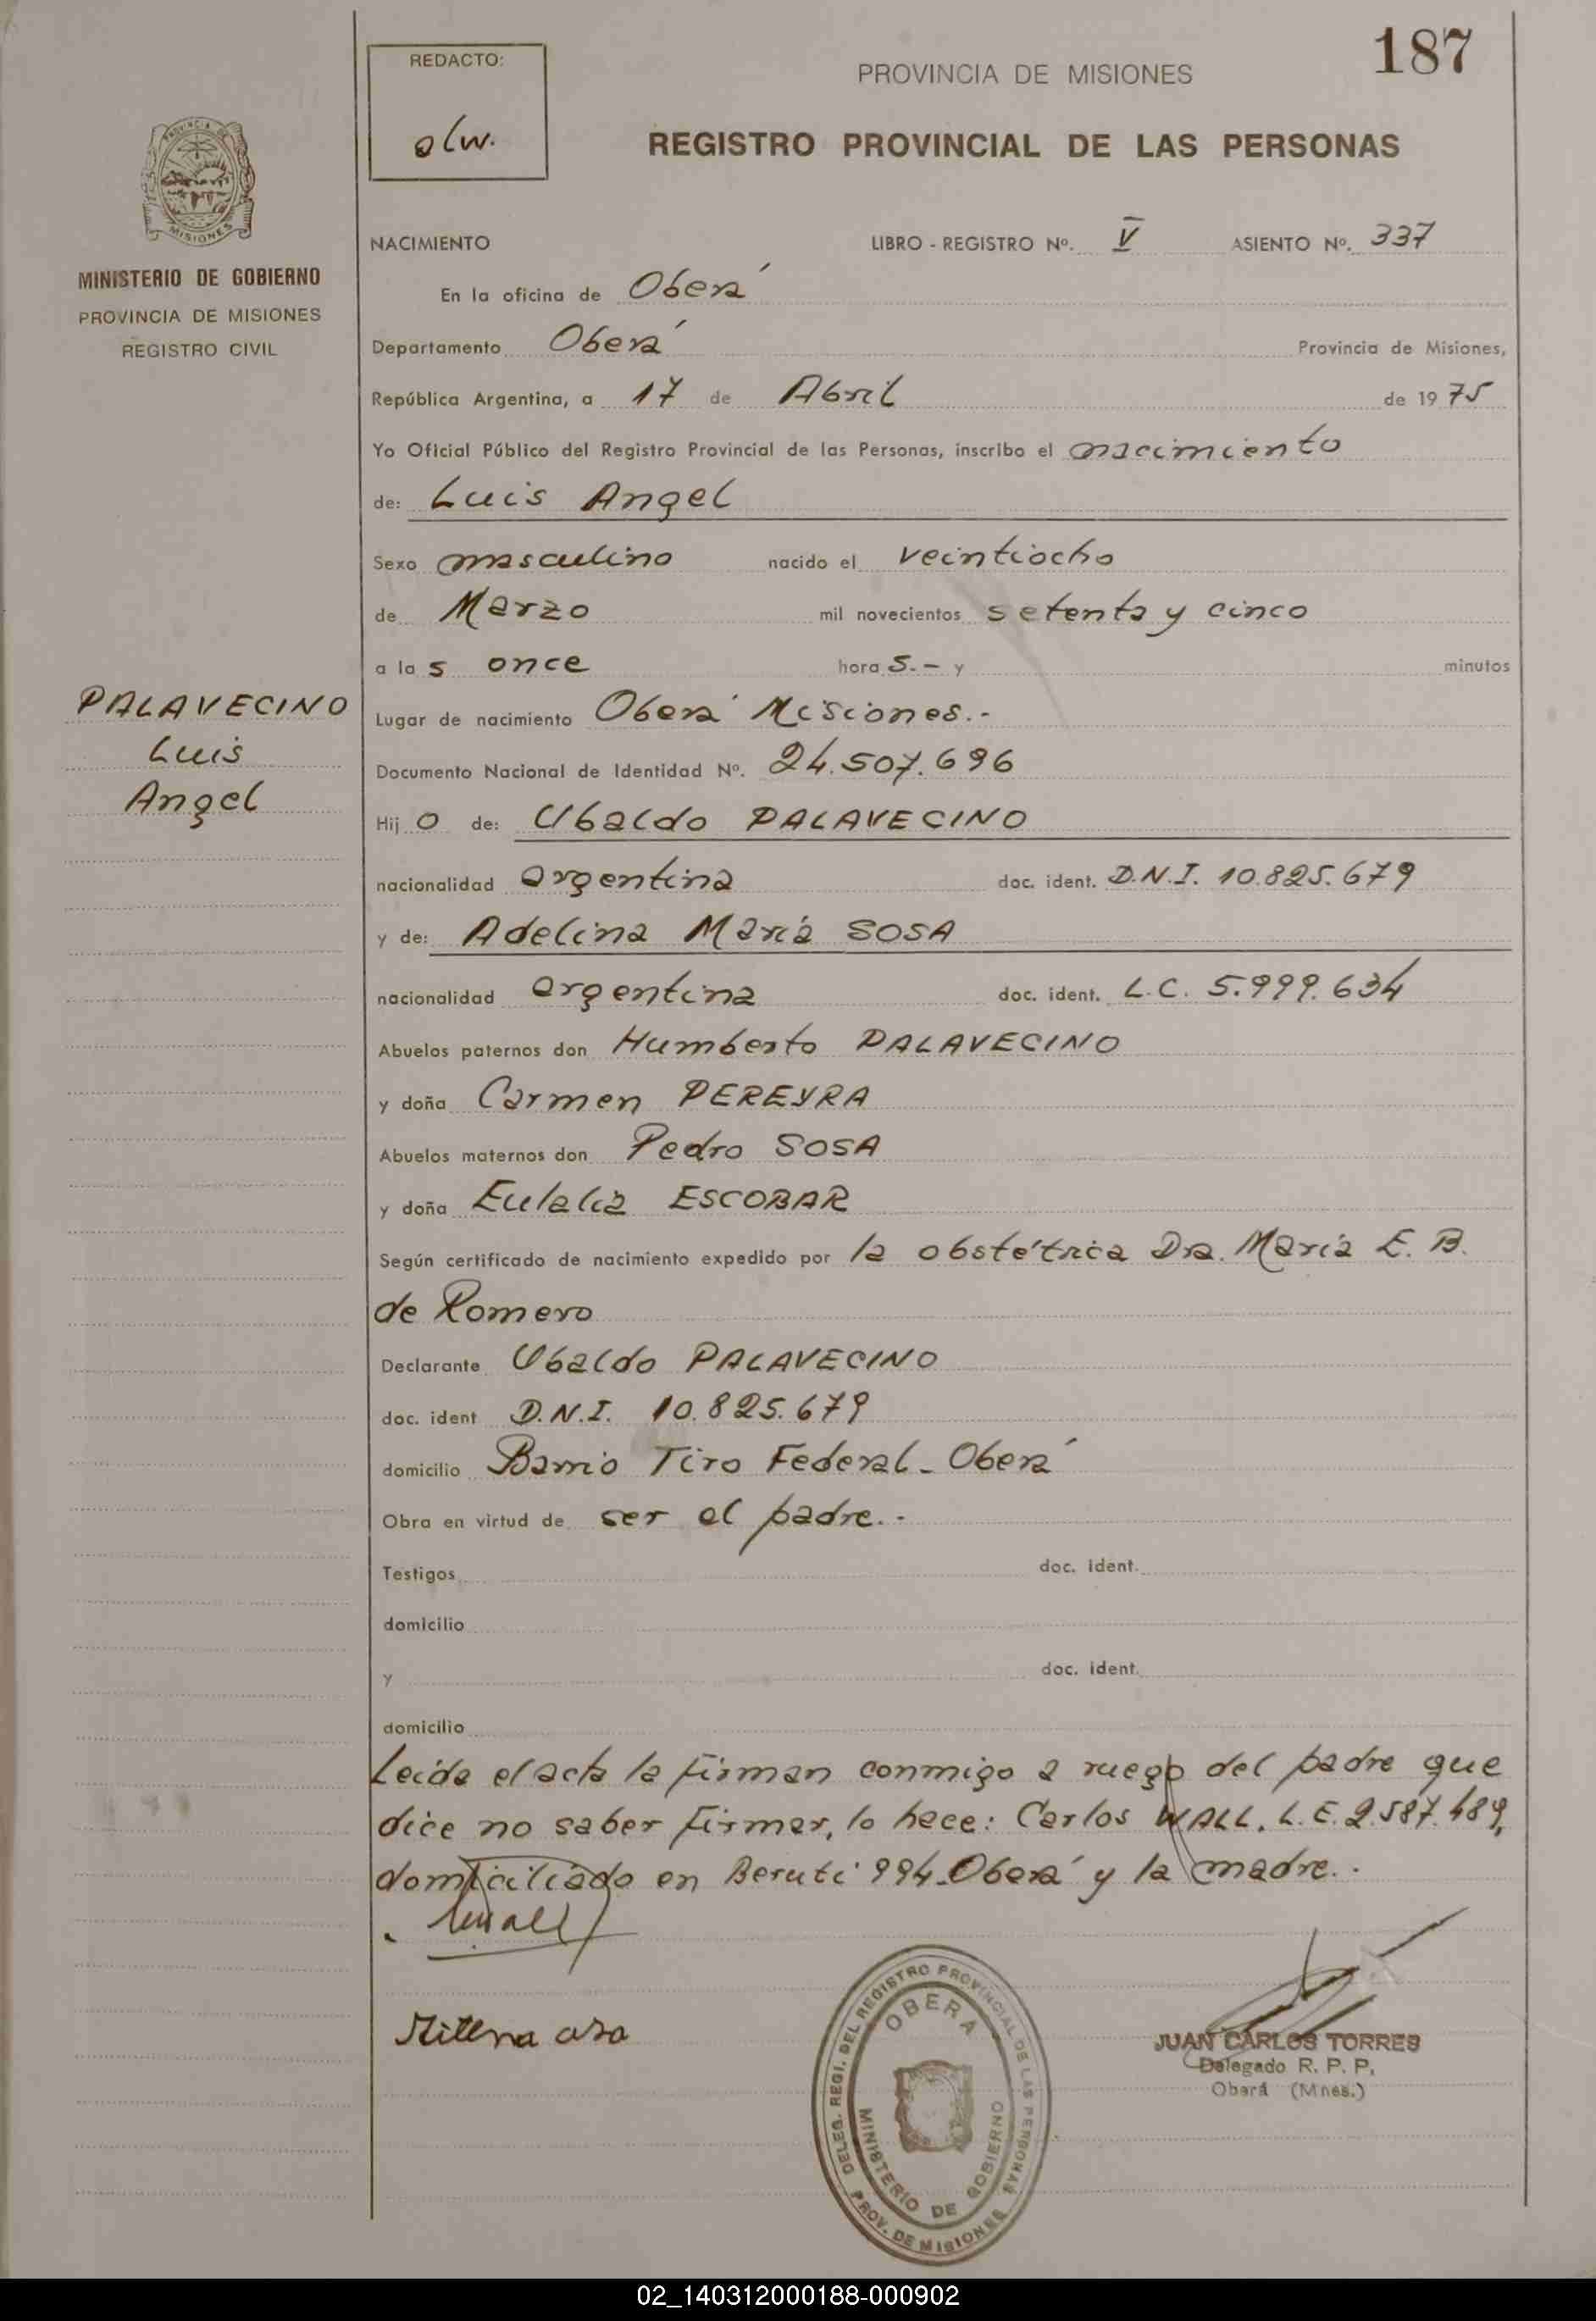 187
REDACTO:
olw.
PROVINCIA DE MISIONES
REGISTRO PROVINCIAL DE LAS PERSONAS
PROVINCIA DE MISIONES
MINISTERIO DE GOBIERNO
PROVINCIA DE MISIONES
REGISTRO CIVIL
NACIMIENTO LIBRO - REGISTRO Nº. V ASIENTO Nº. 337
En la oficina de Oberá
Departamento Oberá Provincia de Misiones,
República Argentina, a 17 de Abril de 1975
Yo Oficial Público del Registro Provincial de las Personas, inscribo el nacimiento
de: Luis Angel
Sexo masculino nacido el veintiocho
de Marzo mil novecientos setenta y cinco
a las once horas.- y minutos
PALAVECINO
Luis
Angel
Lugar de nacimiento Oberá Misiones.-
Documento Nacional de Identidad Nº. 24.507.696
Hijo de: Ubaldo PALAVECINO
nacionalidad argentina doc. ident. D.N.I. 10.825.679
y de: Adelina María SOSA
nacionalidad argentina doc. ident. L.C. 5.999.634
Abuelos paternos don Humberto PALAVECINO
y doña Carmen PEREYRA
Abuelos maternos don Pedro SOSA
y doña Eulalia ESCOBAR
Según certificado de nacimiento expedido por la obstétrica Dra. María E. B.
de Romero
Declarante Ubaldo PALAVECINO
doc. ident D.N.I. 10.825.679
domicilio Barrio Tiro Federal - Oberá
Obra en virtud de ser el padre.-
Testigos doc. ident.
domicilio
y doc. ident.
domicilio
Leída el acta la firman conmigo a ruego del padre que
dice no saber firmar, lo hace: Carlos WALL. L.E. 2.587.489,
domiciliado en Beruti 994-Oberá y la madre.-
DELEG. REGI. DEL REGISTRO PROVINCIAL DE LAS PERSONAS
OBERA
MINISTERIO DE GOBIERNO
PROV. DE MISIONES
JUAN CARLOS TORRES
Delegado R. P. P.
Oberá (Mnes.)
02_140312000188-000902